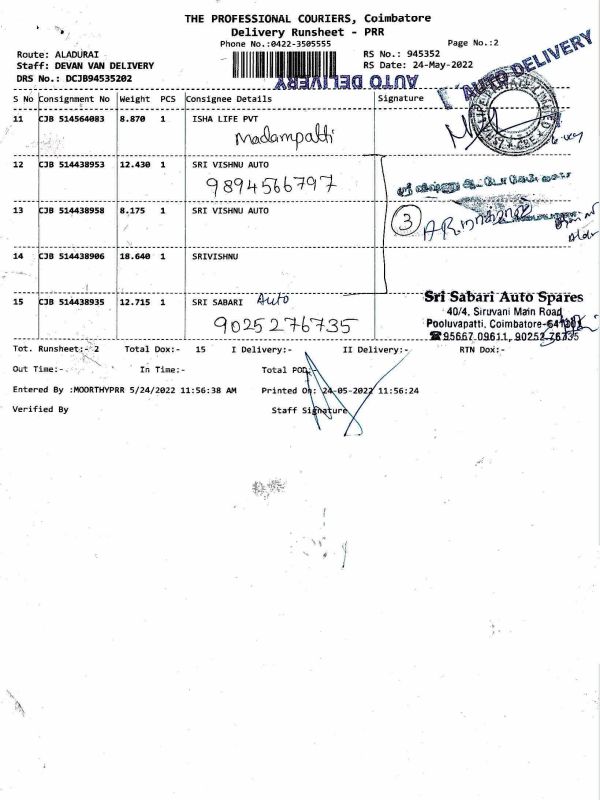 THE PROFESSIONAL COURIERS, Coimbatore
Delivery Runsheet - PRR
Phone No.:0422-3505555
Page No.:2
Route: ALADURAI
RS No.: 945352
Staff: DEVAN VAN DELIVERY
RS Date: 24-May-2022
DRS No.: DCJB94535202
AUTO DELIVERY
AUTO DELIVERY
S No Consignment No Weight PCS Consignee Details Signature
11 CJB 514564083 8.870 1 ISHA LIFE PVT
Madampatti
12 CJB 514438953 12.430 1 SRI VISHNU AUTO
9894566797
ஸ்ரீ விஷ்ணு ஆட்டோ
13 CJB 514438958 8.175 1 SRI VISHNU AUTO
3
14 CJB 514438906 18.640 1 SRIVISHNU
15 CJB 514438935 12.715 1 SRI SABARI Auto
9025276735
Sri Sabari Auto Spares
40/4, Siruvani Main Road
Pooluvapatti, Coimbatore-641101
☎95667 09611, 90252 76735
Tot. Runsheet:- 2 Total Dox:- 15 I Delivery:- II Delivery:- RTN Dox:-
Out Time:- In Time:- Total POD:-
Entered By :MOORTHYPRR 5/24/2022 11:56:38 AM Printed On: 24-05-2022 11:56:24
Verified By Staff Signature